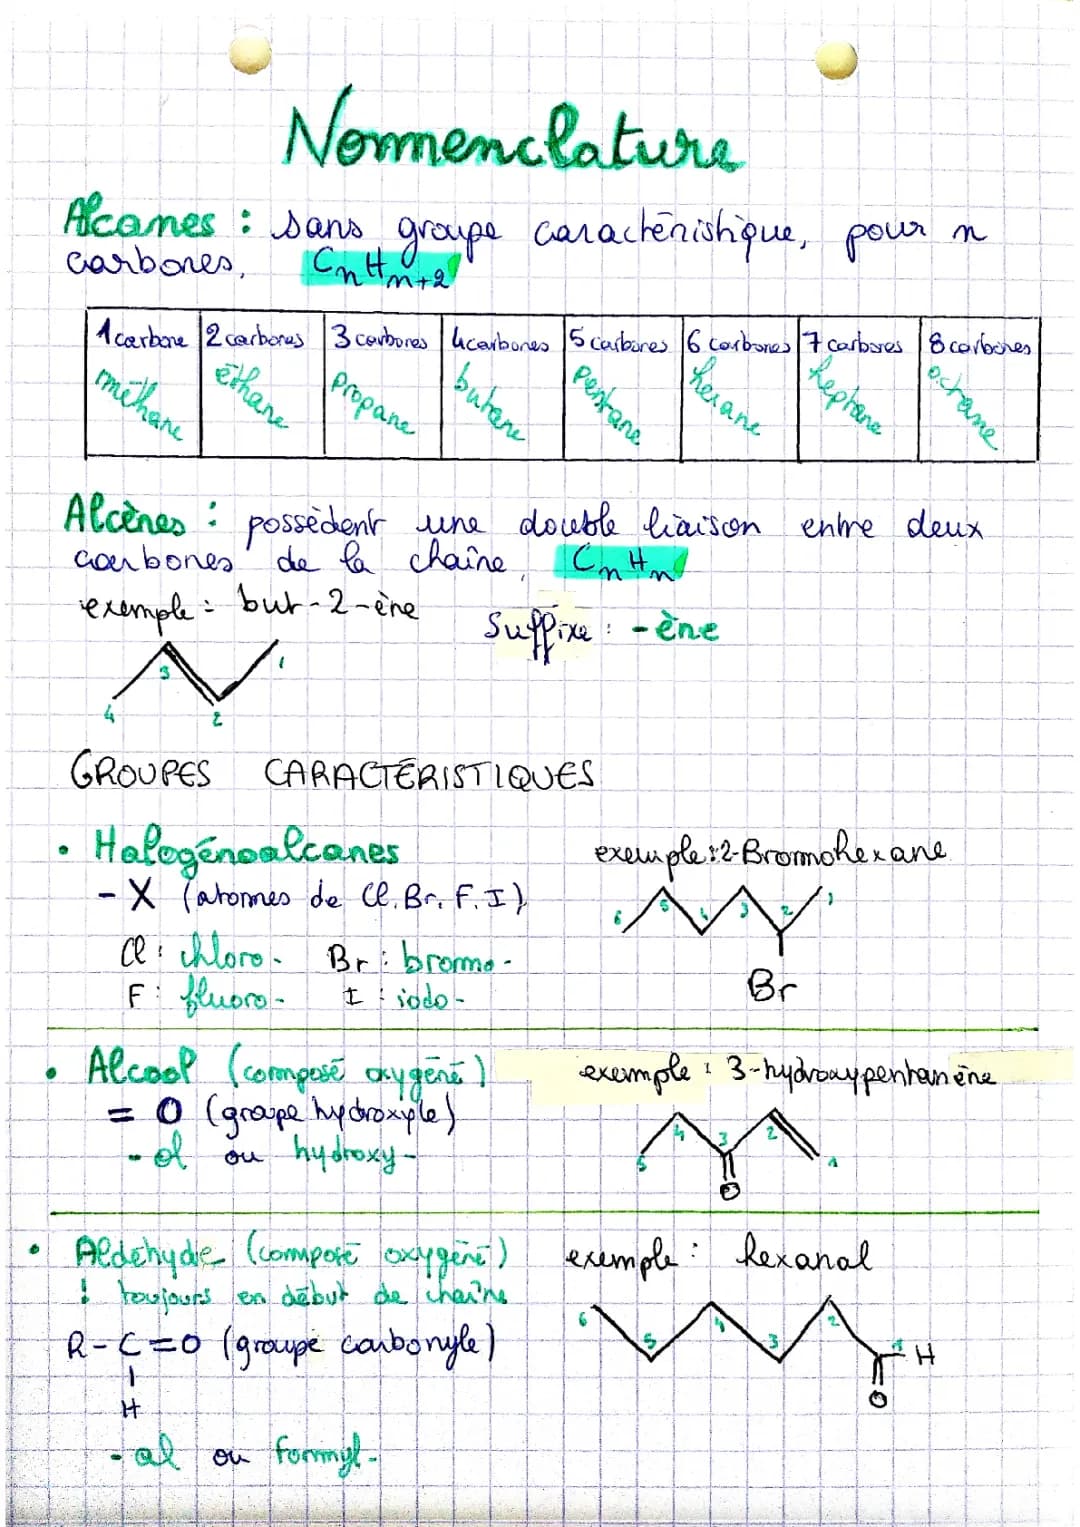 Nomenclature
Alcanes : sans groupe caractéristique, pour n
carbones, CnHn+2
1 carbone 2 carbones 3 carbones 4 carbones 5 carbones 6 carbones 7 carbones 8 carbones
méthane éthane propane butane pentane hexane heptane octane
Alcènes : possèdent une double liaison entre deux
carbones de la chaîne, CnHn
exemple : but-2-ène
Suffixe : -ène
1
3
4 2
GROUPES CARACTÉRISTIQUES
• Halogénoalcanes
exemple : 2-Bromohexane
- X (atomes de Cl, Br, F, I)
6 5 4 3 2 1
Cl : chloro- Br : bromo-
Br
F : fluoro- I : iodo-
• Alcool (composé oxygéné)
exemple : 3-hydroxypentanène
= O (groupe hydroxyle)
5 4 3 2 1
- ol ou hydroxy-
O
• Aldéhyde (composé oxygéné)
exemple : hexanal
! toujours en début de chaîne
6 5 4 3 2 1 H
R-C=O (groupe carbonyle)
O
H
- al ou formyl-